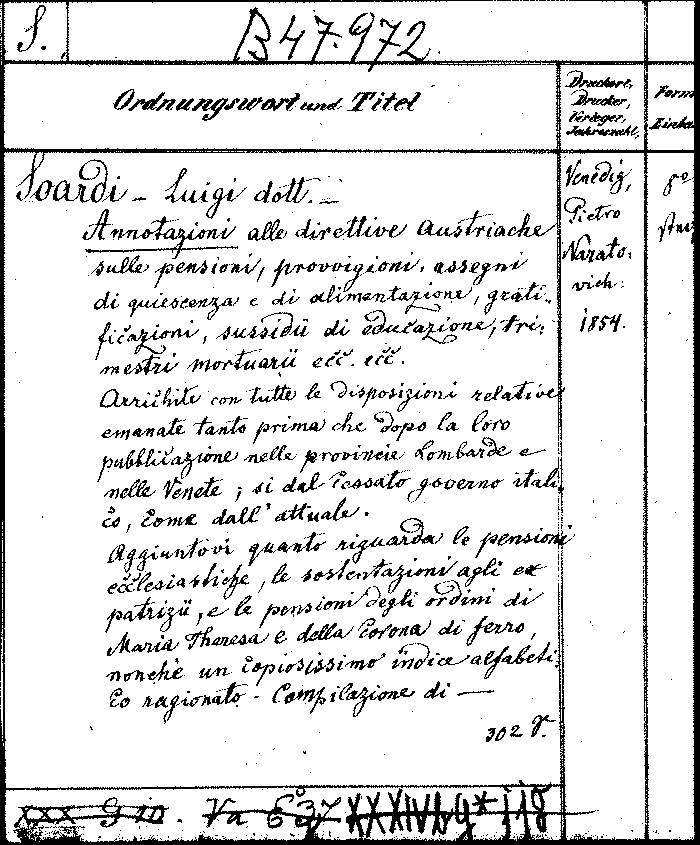 S.
B47.972
Ordnungswort und Titel
Druckort,
Drucker,
Verleger,
Jahrszahl.
Form
Einba
Soardi - Luigi dott. -
Annotazioni alle direttive Austriache
sulle pensioni, provvigioni, assegni
di quiescenza e di alimentazione, grati-
ficazioni, sussidii di educazione, tri-
mestri mortuarii ecc. ecc.
Arrichite con tutte le disposizioni relative
emanate tanto prima che dopo la loro
pubblicazione nelle provincie Lombarde e
nelle Venete; si dal cessato governo itali-
co, come dall' attuale.
Aggiuntovi quanto riguarda le pensioni
ecclesiastiche, le sostentazioni agli ex
patrizii, e le pensioni degli ordini di
Maria Theresa e della Corona di ferro,
nonchè un copiosissimo indice alfabeti-
co ragionato - Compilazione di —
302 S.
Venedig,
Pietro
Narato-
vich.
1854.
8°
XXX G 10. Va E 37